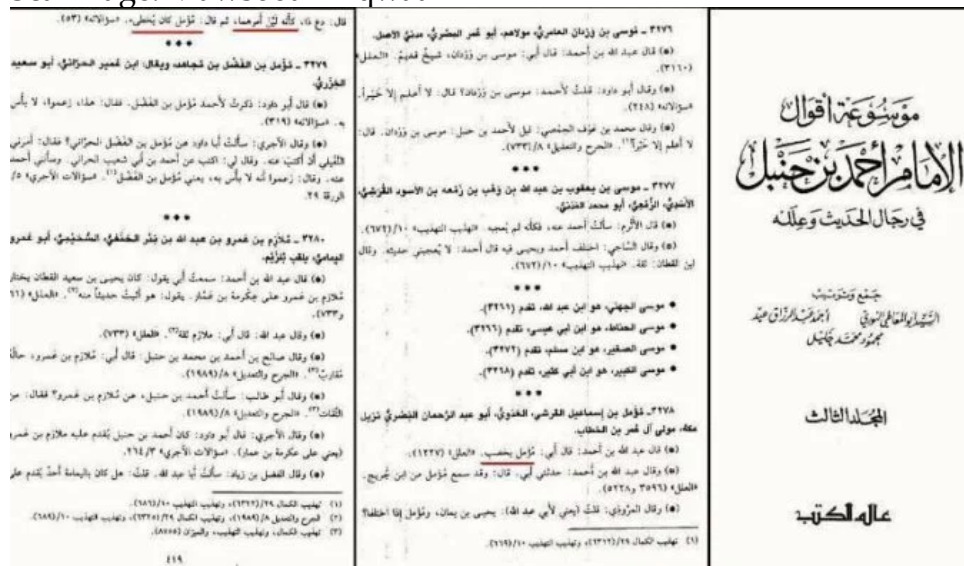 موسوعة أقوال
الإمام أحمد بن حنبل
في رجال الحديث وعلله
جمع وترتيب
السيد أبو المعاطي النوري أحمد عبد الرزاق عيد
محمود محمد خليل
المجلد الثالث
عالم الكتب
٣٢٧٦ - موسى بن وردان العامري، مولاهم، أبو عمر البصري، مدني الأصل.
(*) قال عبد الله بن أحمد: قال أبي: موسى بن وردان، شيخ قديم. «العلل»
(٣١٦٠).
(*) وقال أبو داود: قلت لأحمد: موسى بن وردان؟ قال: لا أعلم إلا خيراً.
«سؤالاته» (٢٤٨).
(*) وقال محمد بن عوف الحمصي: قيل لأحمد بن حنبل: موسى بن وردان. قال:
لا أعلم إلا خيراً(١). «الجرح والتعديل» ٨/(٧٣٣).
***
٣٢٧٧ - موسى بن يعقوب بن عبد الله بن وهب بن زمعه بن الأسود القرشي،
الأسدي، الزمعي، أبو محمد المدني.
(*) قال الأثرم: سألت أحمد عنه، فكأنه لم يعجبه. «تهذيب التهذيب» ١٠/(٦٧٢).
(*) وقال الساجي: اختلف أحمد ويحيى فيه قال أحمد: لا يعجبني حديثه. وقال
ابن القطان: ثقة. «تهذيب التهذيب» ١٠/(٦٧٢).
***
• موسى الجهني، هو ابن عبد الله، تقدم (٣٢٦١).
• موسى الحناط، هو ابن أبي عيسى، تقدم (٣٢٦٦).
• موسى الصغير، هو ابن مسلم، تقدم (٣٢٧٢).
• موسى الكبير، هو ابن أبي كثير، تقدم (٣٢٦٨).
***
٣٢٧٨ - مؤمل بن إسماعيل القرشي، العدوي، أبو عبد الرحمان البصري نزيل
مكة، مولى آل عمر بن الخطاب.
(*) قال عبد الله بن أحمد: قال أبي: مؤمل يخضب. «العلل» (١٢٢٧).
(*) وقال عبد الله بن أحمد: حدثني أبي. قال: وقد سمع مؤمل من ابن جريج.
«العلل» (٣٥٩٦ و٥٢٢٨).
(*) وقال المروذي: قلت (يعني لأبي عبد الله): يحيى بن يمان، ومؤمل إذا اختلفا؟
(١) تهذيب الكمال ٢٩/(٦٣١٢)، وتهذيب التهذيب ١٠/(٦٦٩).
قال: دع ذا، كأنه لين أمرهما، ثم قال: مؤمل كان يخطئ. «سؤالاته» (٥٣).
***
٣٢٧٩ - مؤمل بن الفضل بن مجاهد، ويقال: ابن عمير الحراني، أبو سعيد
الجزري.
(*) قال أبو داود: ذكرت لأحمد مؤمل بن الفضل. فقال: هذا، زعموا، لا بأس
به. «سؤالاته» (٣١٩).
(*) وقال الآجري: سألت أبا داود عن مؤمل بن الفضل الحراني؟ فقال: أمرني
النفيلي أن أكتب عنه. وقال لي: اكتب عن أحمد بن أبي شعيب الحراني. وسألني أحمد
عنه. وقال: زعموا أنه لا بأس به، يعني مؤمل بن الفضل(١). «سؤالات الآجري» ٥/
الورقة ٢٩.
***
٣٢٨٠ - ملازم بن عمرو بن عبد الله بن بدر الحنفي، السحيمي، أبو عمرو
اليمامي، يلقب بلزيم.
(*) قال عبد الله بن أحمد: سمعت أبي يقول: كان يحيى بن سعيد القطان يختار
ملازم بن عمرو على عكرمة بن عمار. يقول: هو أثبت حديثاً منه(٢). «العلل»
و٧٣٣).
(*) وقال عبد الله: قال أبي: ملازم ثقة(٢). «العلل» (٧٣٣).
(*) وقال صالح بن أحمد بن محمد بن حنبل: قال أبي: ملازم بن عمرو، حاله
مقارب(٣). «الجرح والتعديل» ٨/(١٩٨٩).
(*) وقال أبو طالب: سألت أحمد بن حنبل، عن ملازم بن عمرو؟ فقال: من
الثقات(٣). «الجرح والتعديل» ٨/(١٩٨٩).
(*) وقال الآجري: قال أبو داود: كان أحمد بن حنبل يقدم عليه ملازم بن عمرو
(يعني على عكرمة بن عمار). «سؤالات الآجري» ٣/٢٦٤.
(*) وقال الفضل بن زياد: سألت أبا عبد الله. قلت: هل كان باليمامة أحد يقدم على
(١) تهذيب الكمال ٢٩/(٦٣٢٢)، وتهذيب التهذيب ١٠/(٦٨٦).
(٢) الجرح والتعديل ٨/(١٩٨٩)، وتهذيب الكمال ٢٩/(٦٣٢٥)، وتهذيب التهذيب ١٠/(٦٨٩).
(٣) تهذيب الكمال، وتهذيب التهذيب، والميزان (٨٧٥٥).
٤١٩